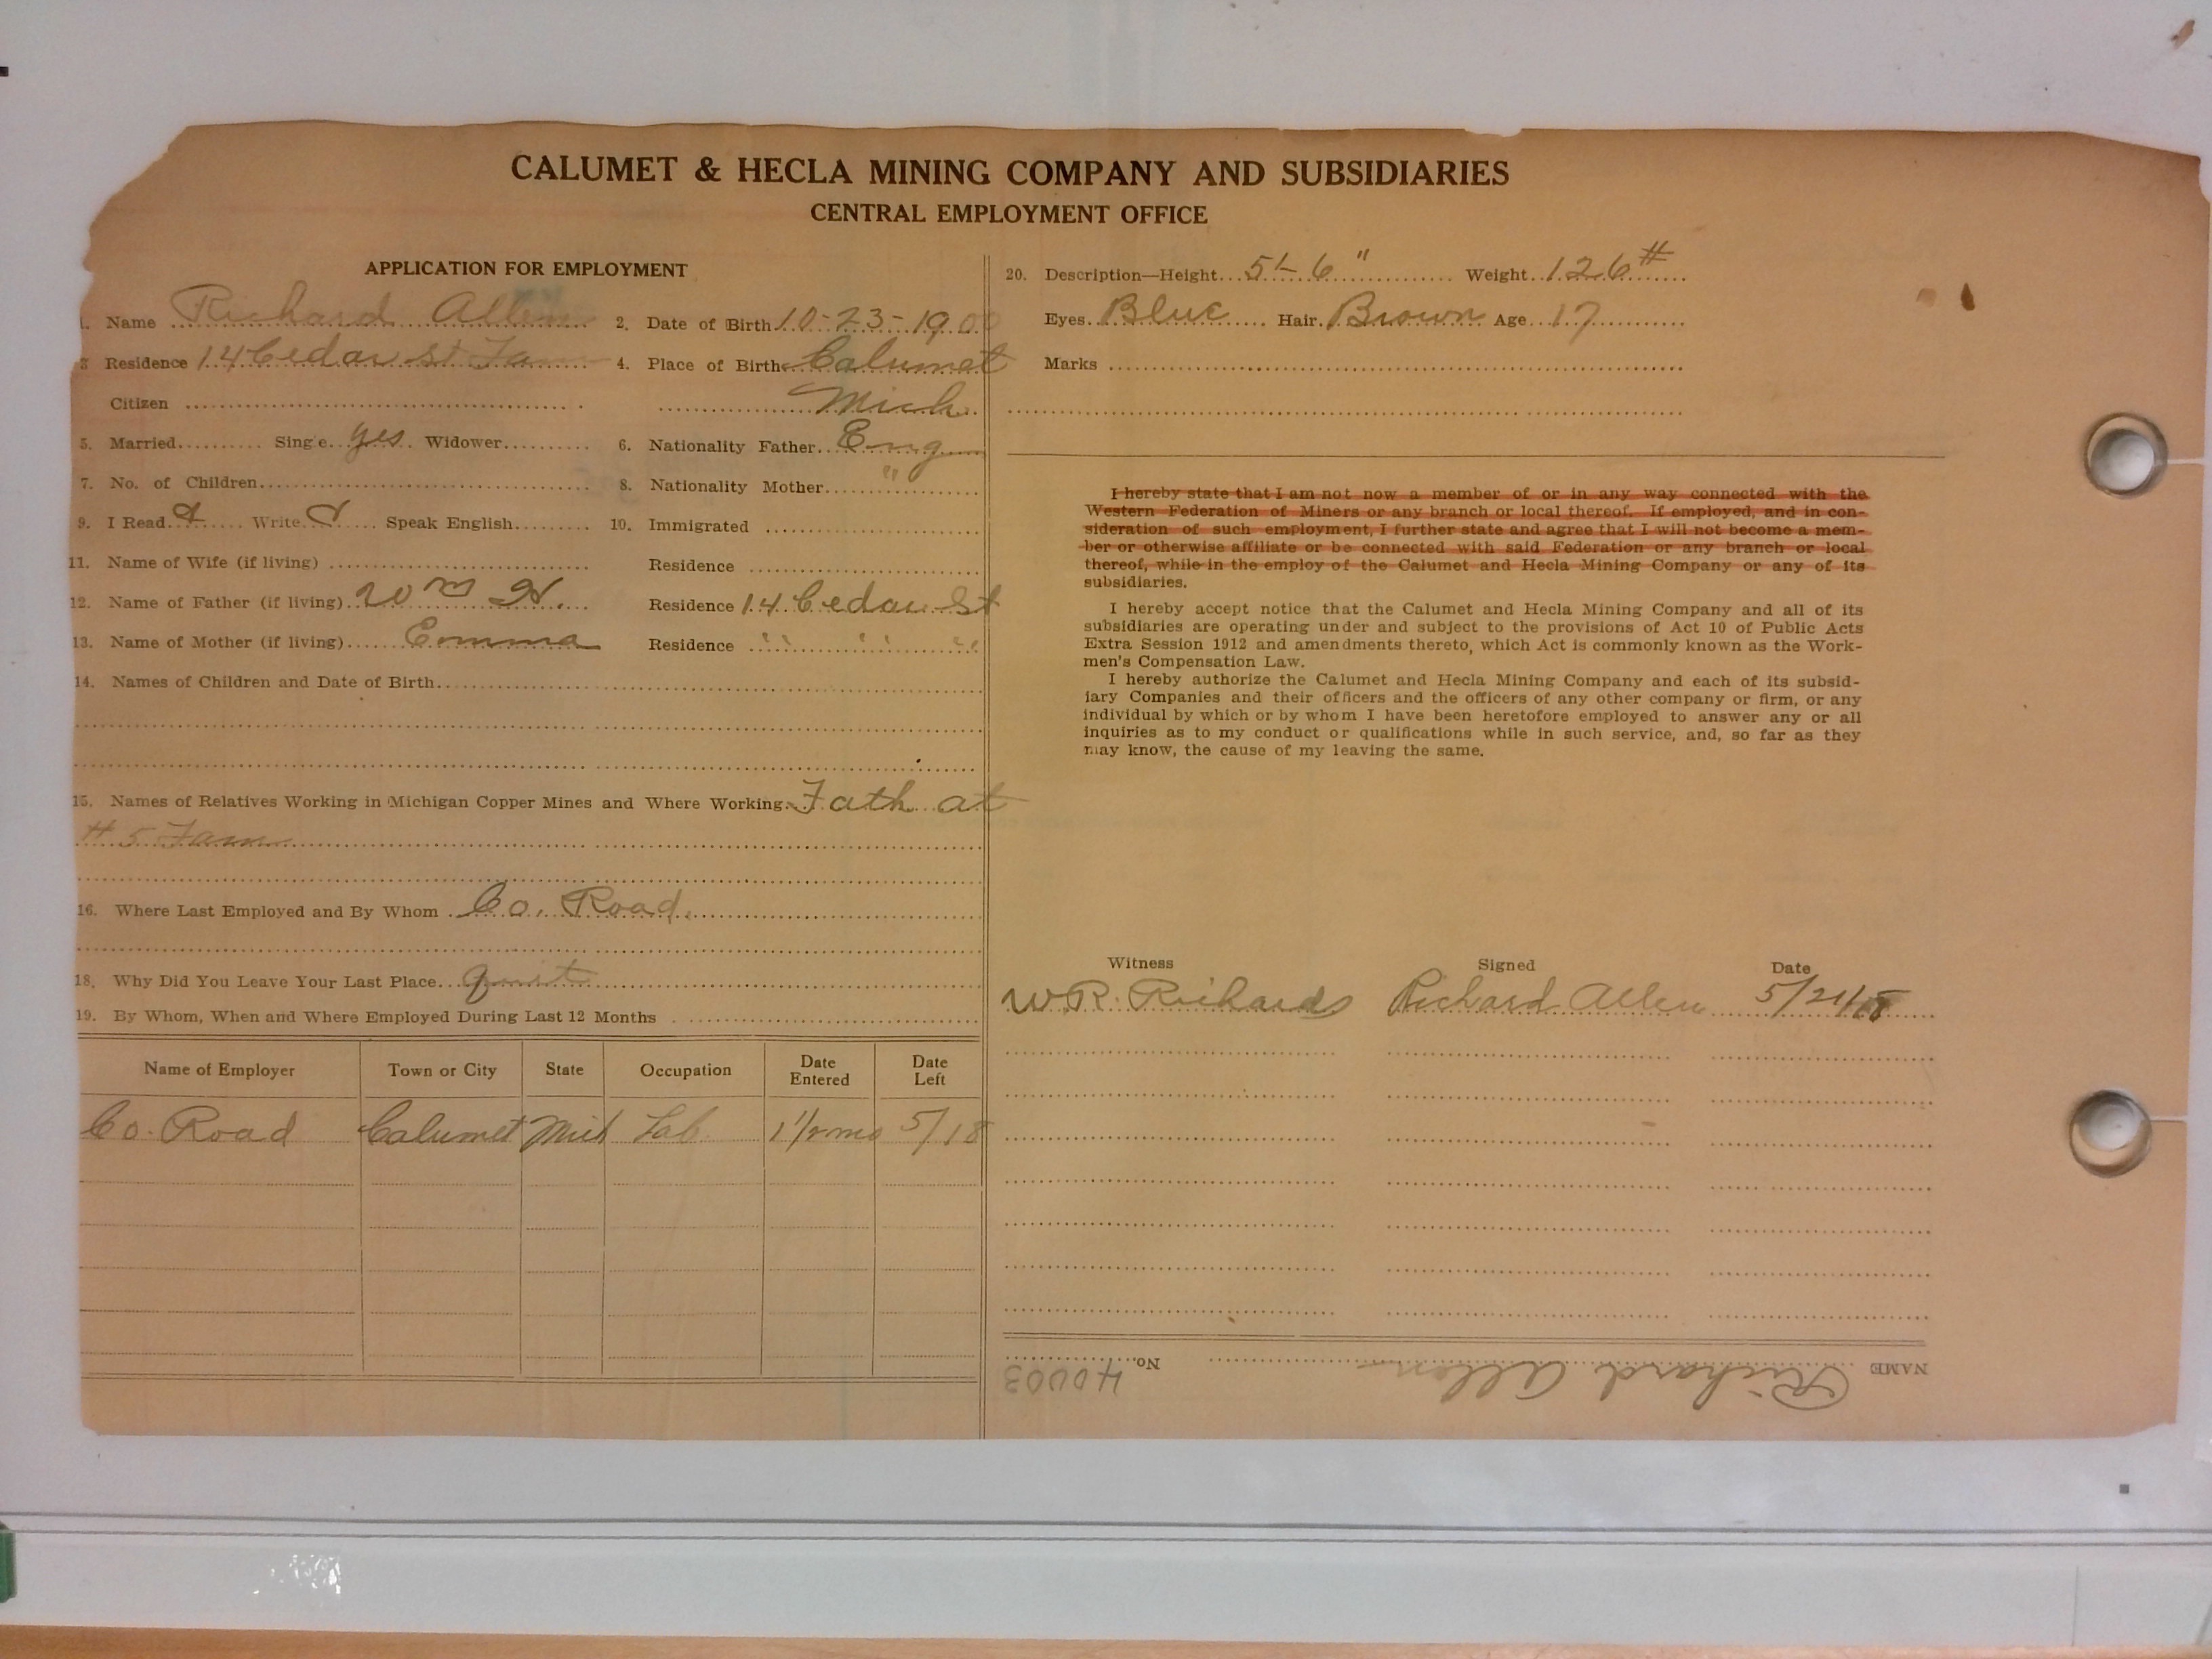 CALUMET & HECLA MINING COMPANY AND SUBSIDIARIES
CENTRAL EMPLOYMENT OFFICE
APPLICATION FOR EMPLOYMENT
1. Name Richard Allen 2. Date of Birth 10-23-1900
3 Residence 14 Cedar St Tam 4. Place of Birth Calumet
Citizen Mich.
5. Married Single yes Widower 6. Nationality Father Eng
7. No. of Children 8. Nationality Mother "
9. I Read Write Speak English 10. Immigrated
11. Name of Wife (if living) Residence
12. Name of Father (if living) Wm H. Residence 14 Cedar St
13. Name of Mother (if living) Emma Residence " " "
14. Names of Children and Date of Birth
15. Names of Relatives Working in Michigan Copper Mines and Where Working Fath at
# 5 Tam
16. Where Last Employed and By Whom Co. Road.
18. Why Did You Leave Your Last Place quit
19. By Whom, When and Where Employed During Last 12 Months
Name of Employer Town or City State Occupation Date Entered Date Left
Co. Road Calumet Mich Lab. 1 1/2 mo 5/18
20. Description—Height 5'-6" Weight 126#
Eyes Blue Hair Brown Age 17
Marks
I hereby state that I am not now a member of or in any way connected with the
Western Federation of Miners or any branch or local thereof. If employed, and in con-
sideration of such employment, I further state and agree that I will not become a mem-
ber or otherwise affiliate or be connected with said Federation or any branch or local
thereof, while in the employ of the Calumet and Hecla Mining Company or any of its
subsidiaries.
I hereby accept notice that the Calumet and Hecla Mining Company and all of its
subsidiaries are operating under and subject to the provisions of Act 10 of Public Acts
Extra Session 1912 and amendments thereto, which Act is commonly known as the Work-
men's Compensation Law.
I hereby authorize the Calumet and Hecla Mining Company and each of its subsid-
iary Companies and their officers and the officers of any other company or firm, or any
individual by which or by whom I have been heretofore employed to answer any or all
inquiries as to my conduct or qualifications while in such service, and, so far as they
may know, the cause of my leaving the same.
Witness Signed Date
W.R. Richards Richard Allen 5/21/18
NAME Richard Allen No. 40003